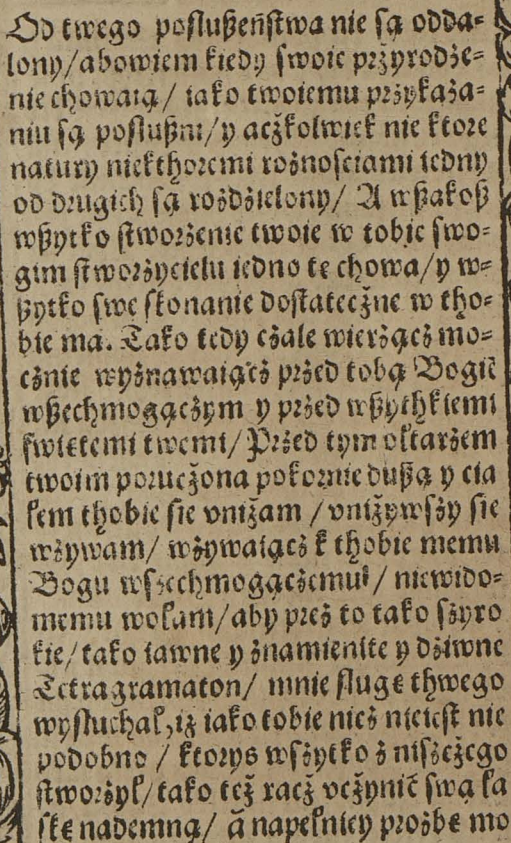 Od twego posłußeństwa nie są odda-
lony/abowiem kiedy swoie przyrodze-
nie chowaią/ iako twoiemu przykaza-
niu są posłußni/y aczkolwiek nie ktore
natury niekthoremi roznosciami iedny
od drugich są rozdzielony/ A wßakoß
wßytko stworzenie twoie w tobie swo-
gim stworzycielu iedno te chowa/y w-
ßytko swe skonanie dostateczne w tho-
bie ma. Tako tedy czale wierzącz mo-
cznie wyznawaiącz przed tobą Bogiē
wßechmogączym y przed wßythkiemi
swietemi twemi/ Przed tym ołtarzem
twoim poruczona pokornie dußą y cia
łem thobie sie vnizam /vnizywszy sie
wzywam/ wzywaiącz k thobie memu
Bogu wszechmogączemu/ niewido-
memu wołam/aby prez to tako szyro
kie/tako iawne y znamienite y dziwne
Tetragramaton/ mnie sługe thwego
wysłuchał,iż iako tobie nicz nieiest nie
podobno / ktorys wszytko z niszczego
stworzył/tako też racz vczynić swą ła
skę nademną/ ā napełniey prozbe mo